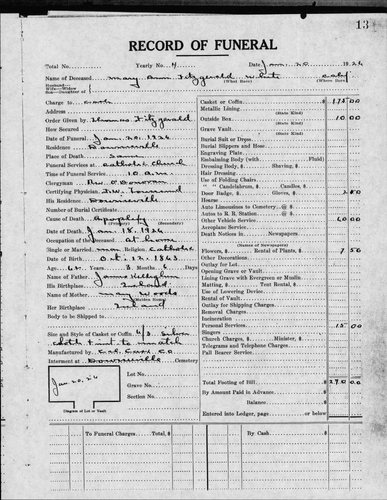 13
RECORD OF FUNERAL
Total No. Yearly No. 4 Date Jan. 20 1926
Name of Deceased Mary Ann Fitzgerald White Calif
(What Race) (Where Born)
Husband of
Wife—Widow
Son—Daughter of
Charge to
Address
Order Given by Thomas Fitzgerald
How Secured
Date of Funeral Jan. 20, 1926
Residence Downieville
Place of Death Same
Funeral Services at Catholic Church
Time of Service 10 A.M.
Clergyman Rev. O'Donovan
Certifying Physician
His Residence Downieville
Number of Burial Certificate
Cause of Death Apoplexy
Date of Death Jan 18, 1926
Occupation of the Deceased at home
Single or Married Religion Catholic
Date of Birth Oct. 12, 1863
Age 62 3 Months 6 Days
Name of Father James
His Birthplace Ireland
Name of Mother Mary Woods
(Maiden Name)
Her Birthplace Ireland
Body to be Shipped to
Size and Style of Casket or Coffin 6/3 Silver
cloth to match
Manufactured by Cal. Cask. Co
Interment at Downieville Cemetery
Jan 20, 26
Lot No.
Grave No.
Section No.
Diagram of Lot or Vault
Casket or Coffin $ 175 00
Metallic Lining
(State Kind)
Outside Box 10 00
(State Kind)
Grave Vault
(State Kind)
Burial Suit or Dress
Burial Slippers and Hose
Engraving Plate
Embalming Body (with Fluid)
Dressing Body, $ Shaving, $
Hair Dressing
Use of Folding Chairs
" " Candelabrum, $ Candles, $
Door Badge, $ Gloves, $ 2 50
Hearse
Auto Limousines to Cemetery @ $
Autos to R. R. Station @ $
Other Vehicle Service 60 00
Aeroplane Service
Death Notices in Newspapers
(Names of Newspapers)
Flowers, $ Rental of Plants, $ 7 50
Other Decorations
Outlay for Lot
Opening Grave or Vault
Lining Grave with Evergreen or Muslin
Matting, $ Tent Rental, $
Use of Lowering Device
Rental of Vault
Outlay for Shipping Charges
Removal Charges
Incineration
Personal Services 15 00
Singers
Church Charges, $ Minister, $
Telegrams and Telephone Charges
Pall Bearer Service
Total Footing of Bill $ 270 00
By Amount Paid in Advance
Balance
Entered into Ledger, page or below
To Funeral Charges Total, $ By Cash $